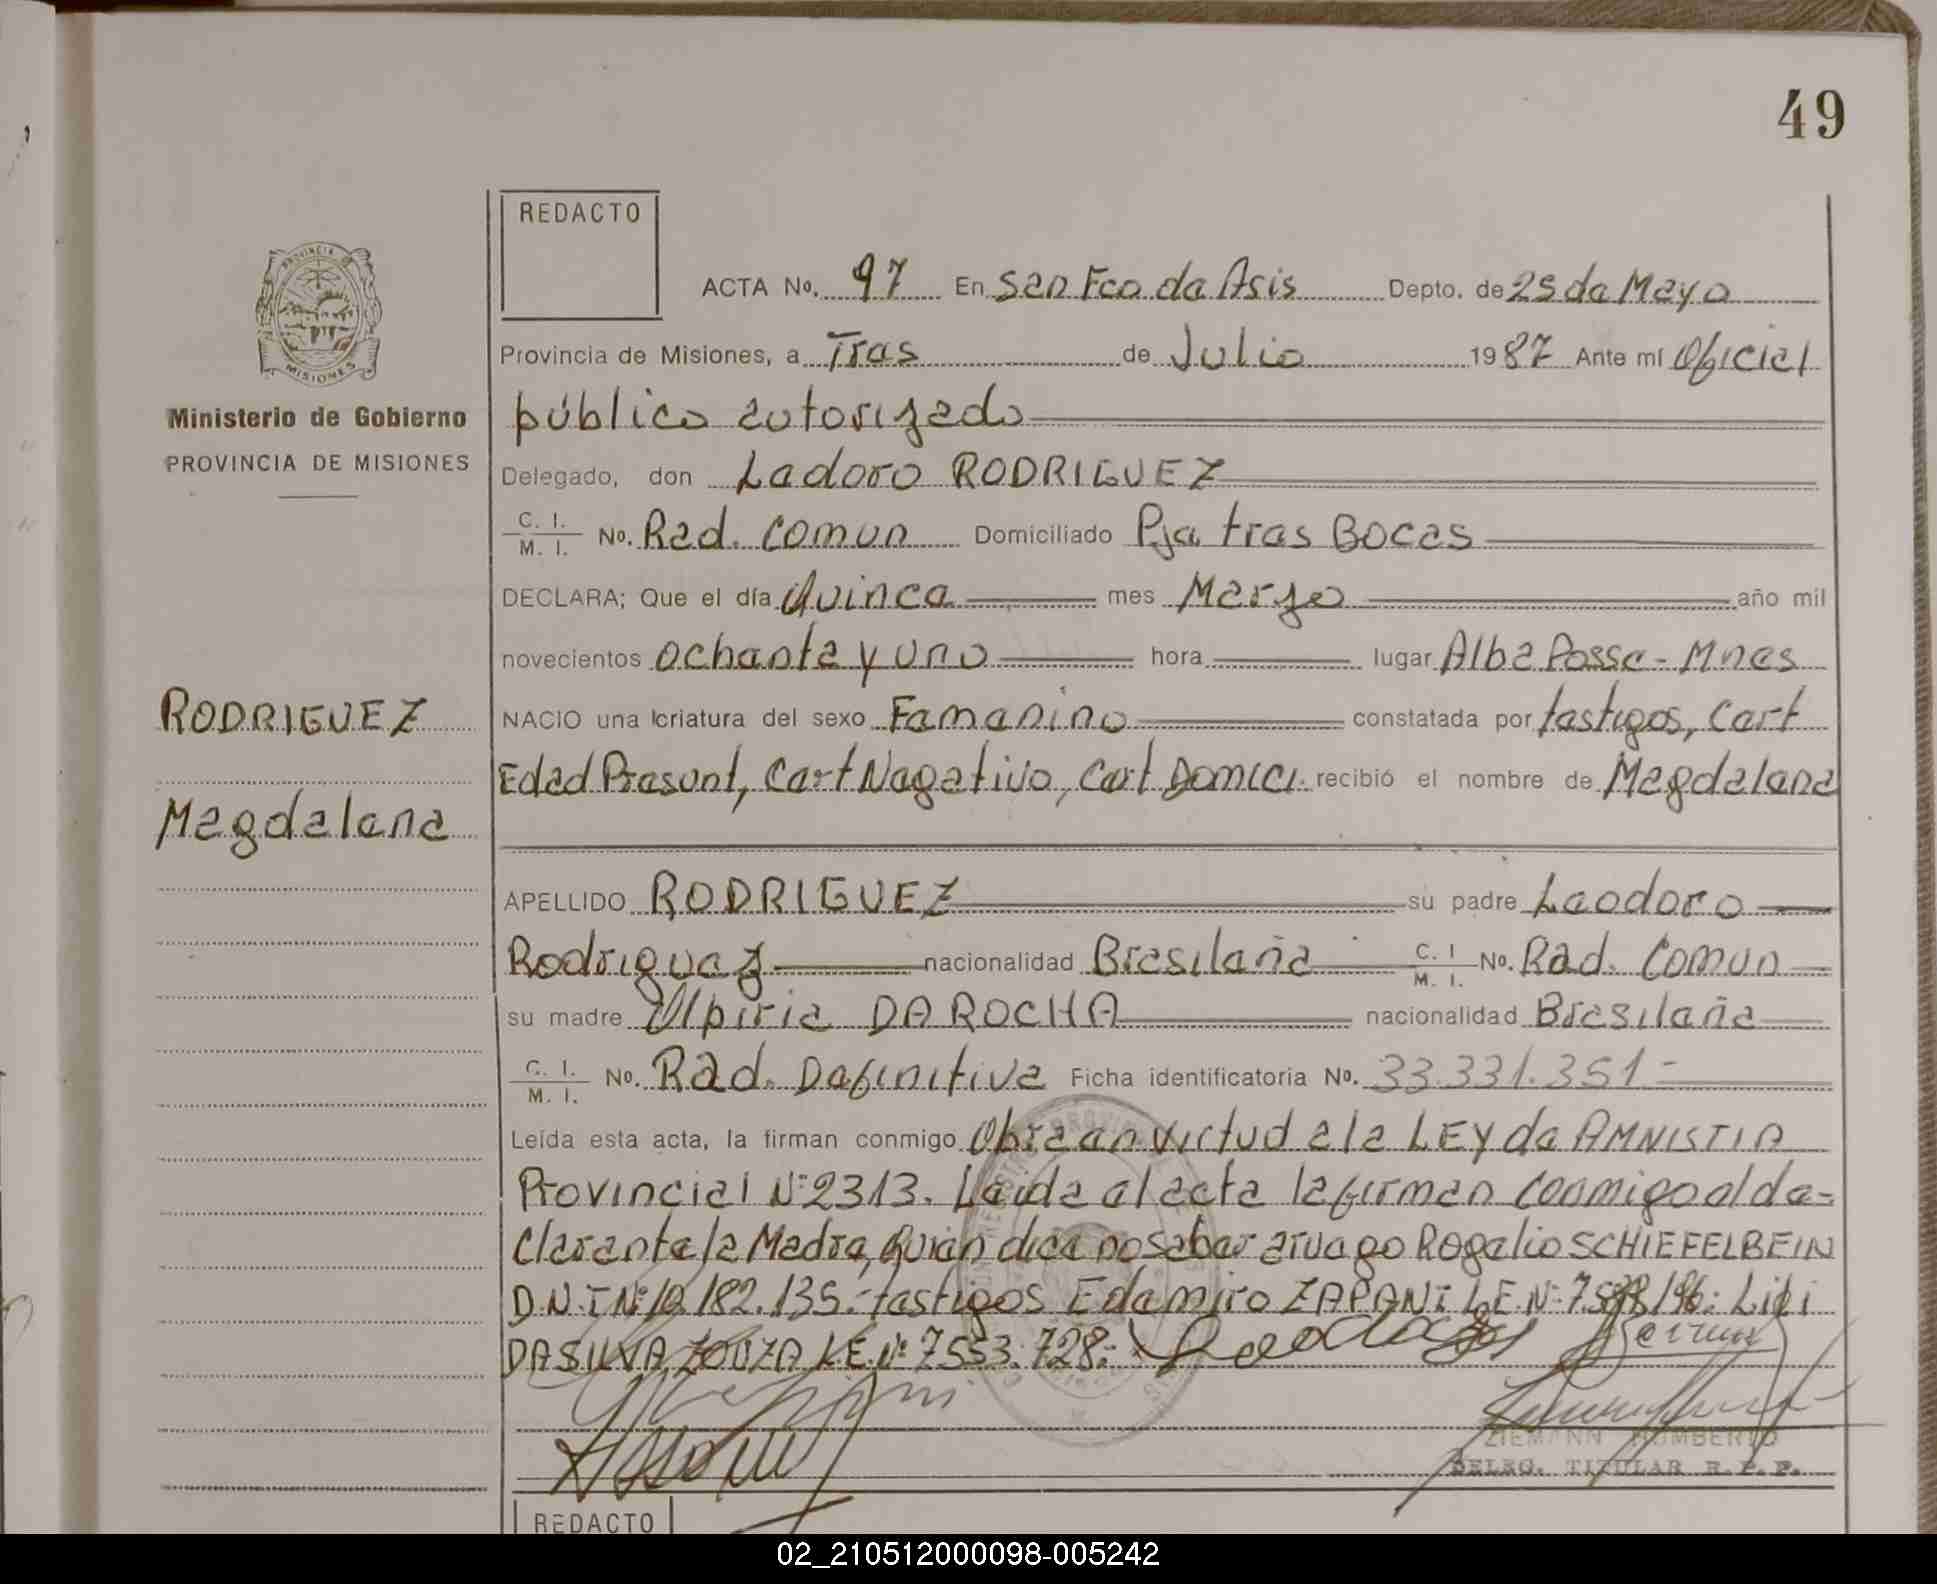 49
REDACTO
ACTA No. 97 En San Fco de Asis Depto. de 25 de Mayo
Provincia de Misiones, a Tres de Julio 1987 Ante mí Oficial
público autorizado
Delegado, don Ladoro RODRIGUEZ
C. I. / M. I. No. Rad. Comun Domiciliado Pje tres Bocas
DECLARA; Que el día Quince mes Marzo año mil
novecientos ochenta y uno hora lugar Alba Posse - Mnes
NACIO una criatura del sexo Femenino constatada por testigos, Cert
Edad Presunt, Cert Negativo, Cert Domici. recibió el nombre de Magdalena
APELLIDO RODRIGUEZ su padre Leodoro
Rodriguez nacionalidad Brasileña C. I / M. I. No. Rad. Comun
su madre Ulpiria DA ROCHA nacionalidad Brasileña
C. I. / M. I. No. Rad. Definitiva Ficha identificatoria No. 33.331.351-
Leída esta acta, la firman conmigo Obra en virtud a la LEY de AMNISTIA
Provincial Nº 2313. Leida el acta la firman conmigo el de-
clarante la Madre, Quien dice no saber a ruego Rogelio SCHIEFELBEIN
D.N.I Nº 10.182.135.- testigos Edemiro ZAPANI L.E. Nº 7.5 196: Lidi
DA SILVA ZOUZA L.E. Nº 7553.728:
ZIEMANN HUMBERTO
DELEG. TITULAR R. P. P.
REDACTO
PROVINCIA DE
MISIONES
Ministerio de Gobierno
PROVINCIA DE MISIONES
RODRIGUEZ
Magdalena
02_210512000098-005242